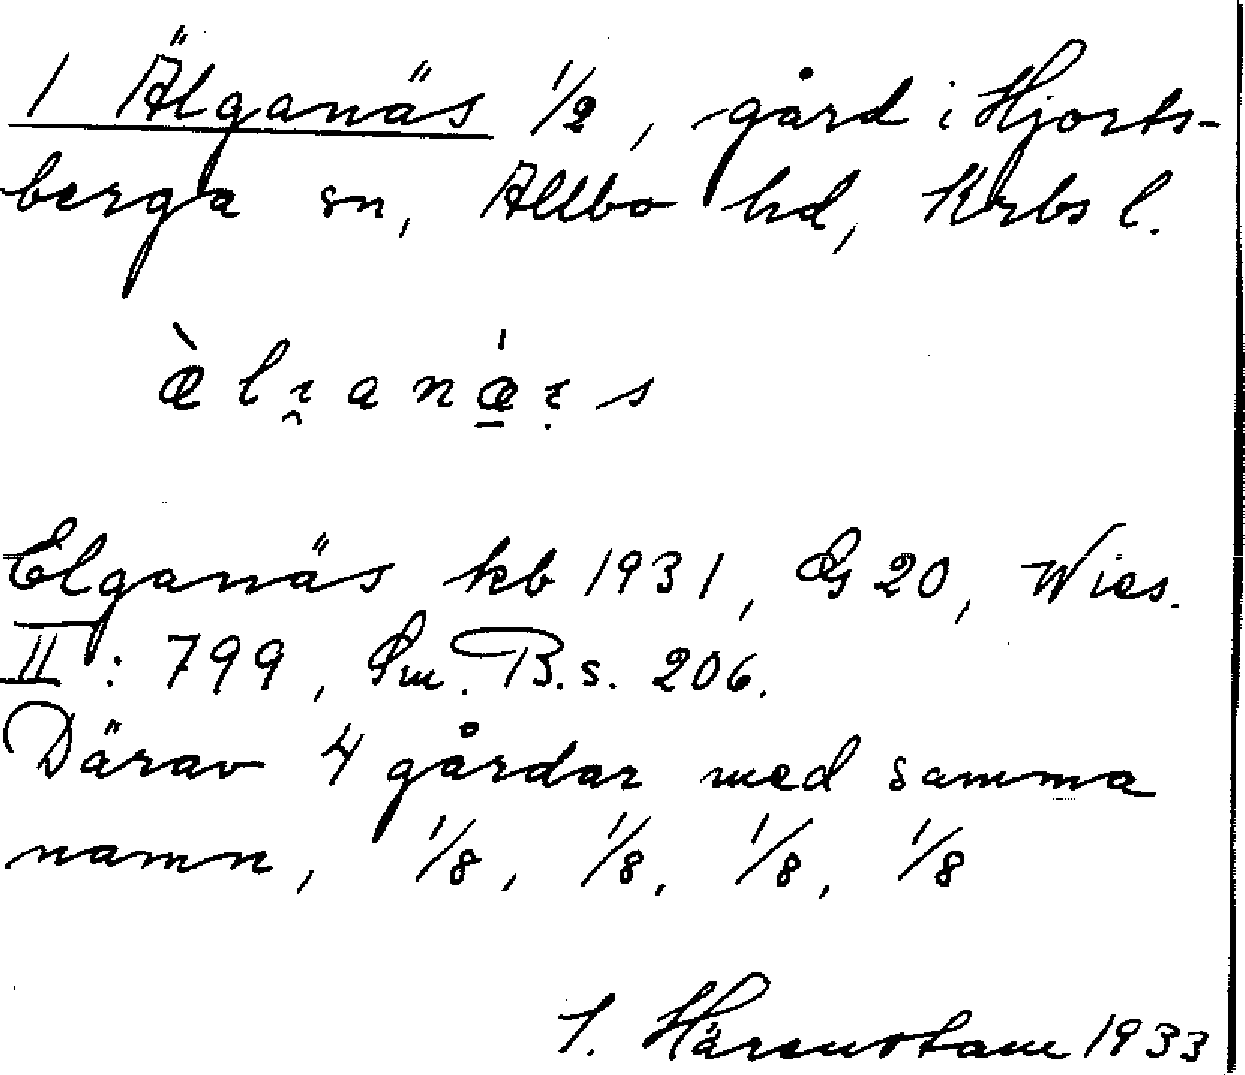 1 Älganäs 1/2, gård i Hjorts-
berga sn, Allbo hd, Krbs l.
Elganäs kb 1931, GS 20, Wies.
II: 799, Sm. B. s. 206.
Därav 4 gårdar med samma
namn, 1/8, 1/8, 1/8, 1/8
1933